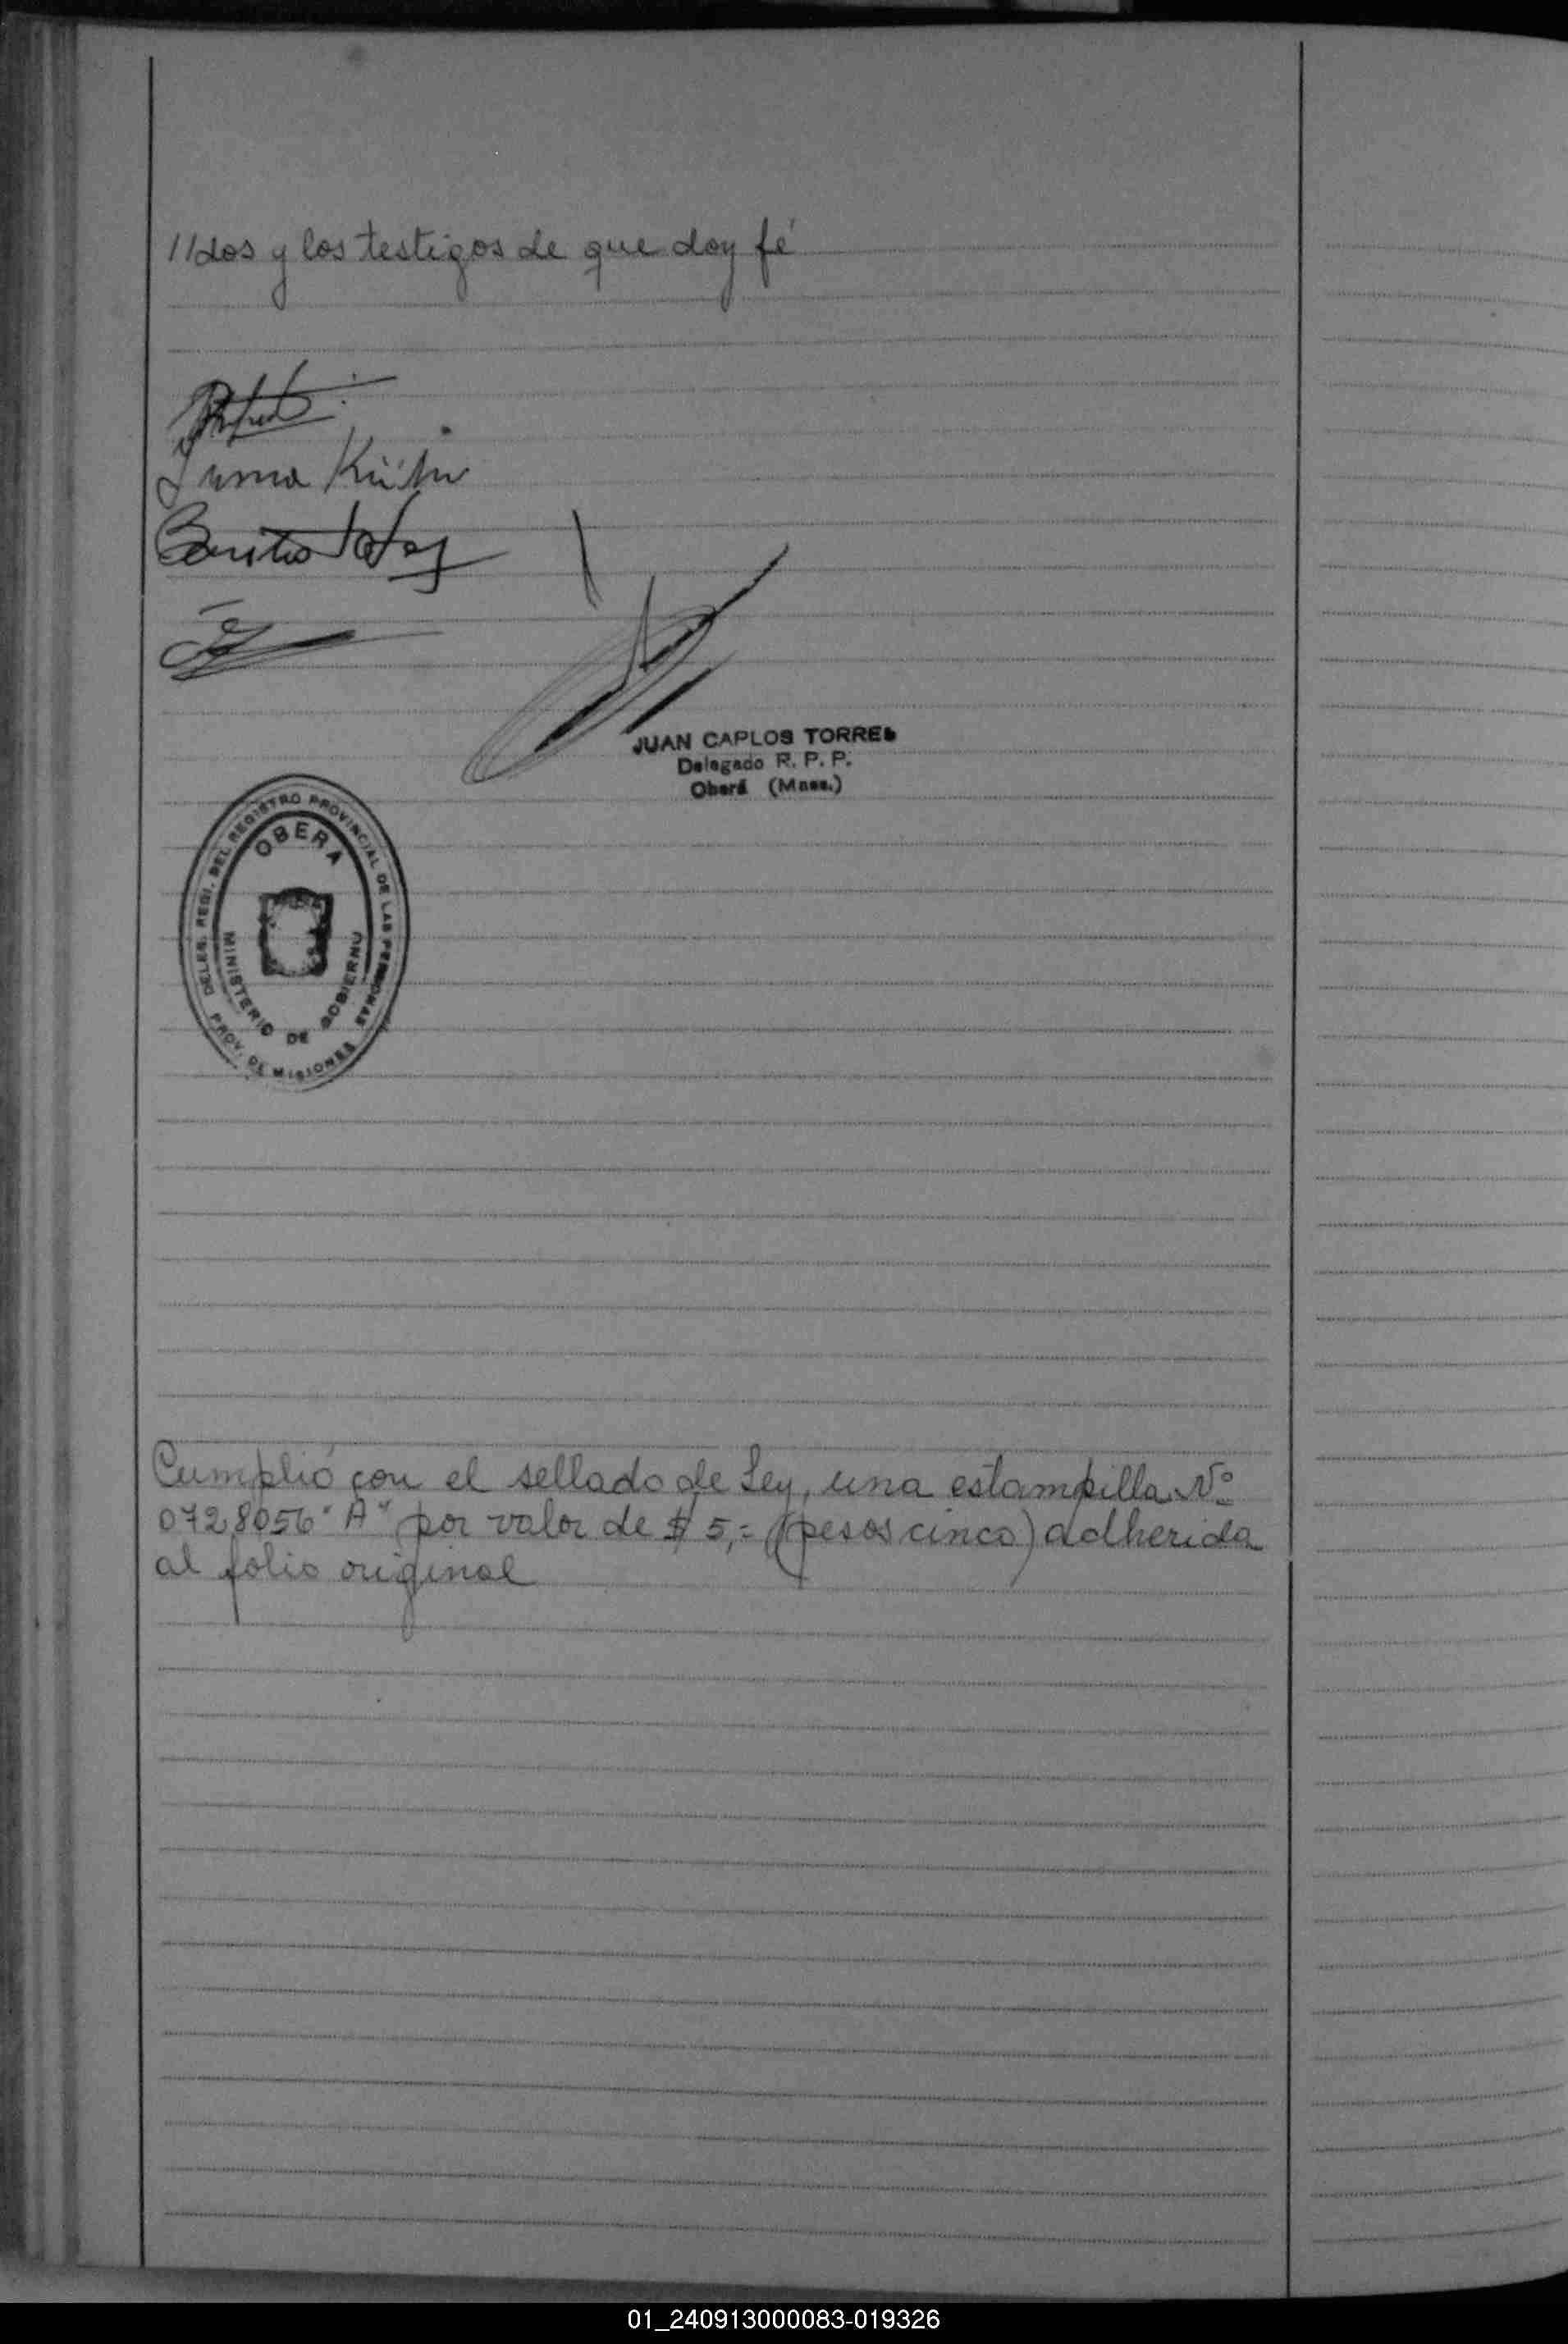 //dos y los testigos de que doy fé
Irma Kühn
JUAN CARLOS TORRES
Delegado R. P. P.
Oberá (Mnes.)
DELEG. REGI. DEL REGISTRO PROVINCIAL DE LAS PERSONAS
OBERA
MINISTERIO DE GOBIERNO
PROV. DE MISIONES
Cumplió con el sellado de Ley, una estampilla Nº
0728056 "A" por valor de $ 5,= (pesos cinco) adherida
al folio original
01_240913000083-019326